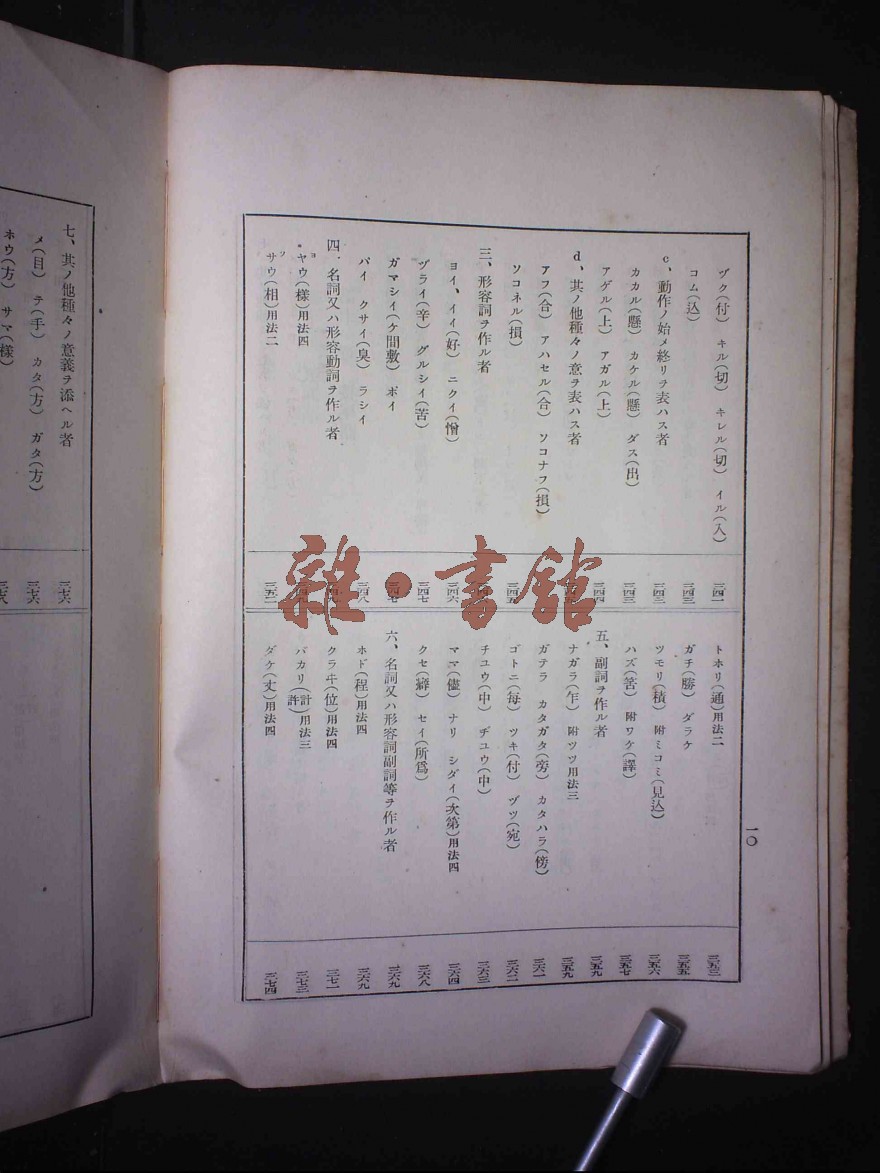 一〇
ヅク(付) キル(切) キレル(切) イル(入) 三四一
コム(込) 三四三
c、動作ノ始メ終リヲ表ハス者 三四三
カカル(懸) カケル(懸) ダス(出) 三四三
アゲル(上) アガル(上) 三四四
d、其ノ他種々ノ意ヲ表ハス者
アフ(合) アハセル(合) ソコナフ(損)
ソコネル(損) 三四五
三、形容詞ヲ作ル者
ヨイ、イイ(好) ニクイ(憎) 三四六
ヅライ(辛) グルシイ(苦) 三四七
ガマシイ(ケ間敷) ポイ 三四七
バイ クサイ(臭) ラシイ 三四八
四、名詞又ハ形容動詞ヲ作ル者
ヤウ(様)用法四
サウ(相)用法二 三五一
トホリ(通)用法二 三五三
ガチ(勝) ダラケ 三五五
ツモリ(積) 附ミコミ(見込) 三五六
ハズ(筈) 附ワケ(譯) 三五七
五、副詞ヲ作ル者 三五九
ナガラ(乍) 附ツツ用法三 三五九
ガテラ カタガタ(旁) カタハラ(傍) 三六一
ゴトニ(毎) ツキ(付) ヅツ(宛) 三六二
チユウ(中) ヂユウ(中) 三六三
ママ(儘) ナリ シダイ(次第)用法四 三六四
クセ(癖) セイ(所爲) 三六八
六、名詞又ハ形容詞副詞等ヲ作ル者 三六九
ホド(程)用法四 三六九
クラヰ(位)用法四 三七一
バカリ(計許)用法三 三七三
ダケ(丈)用法四 三七四
七、其ノ他種々ノ意義ヲ添ヘル者 三七六
メ(目) テ(手) カタ(方) ガタ(方) 三七六
ホウ(方) サマ(様) 三七八
雜·書館